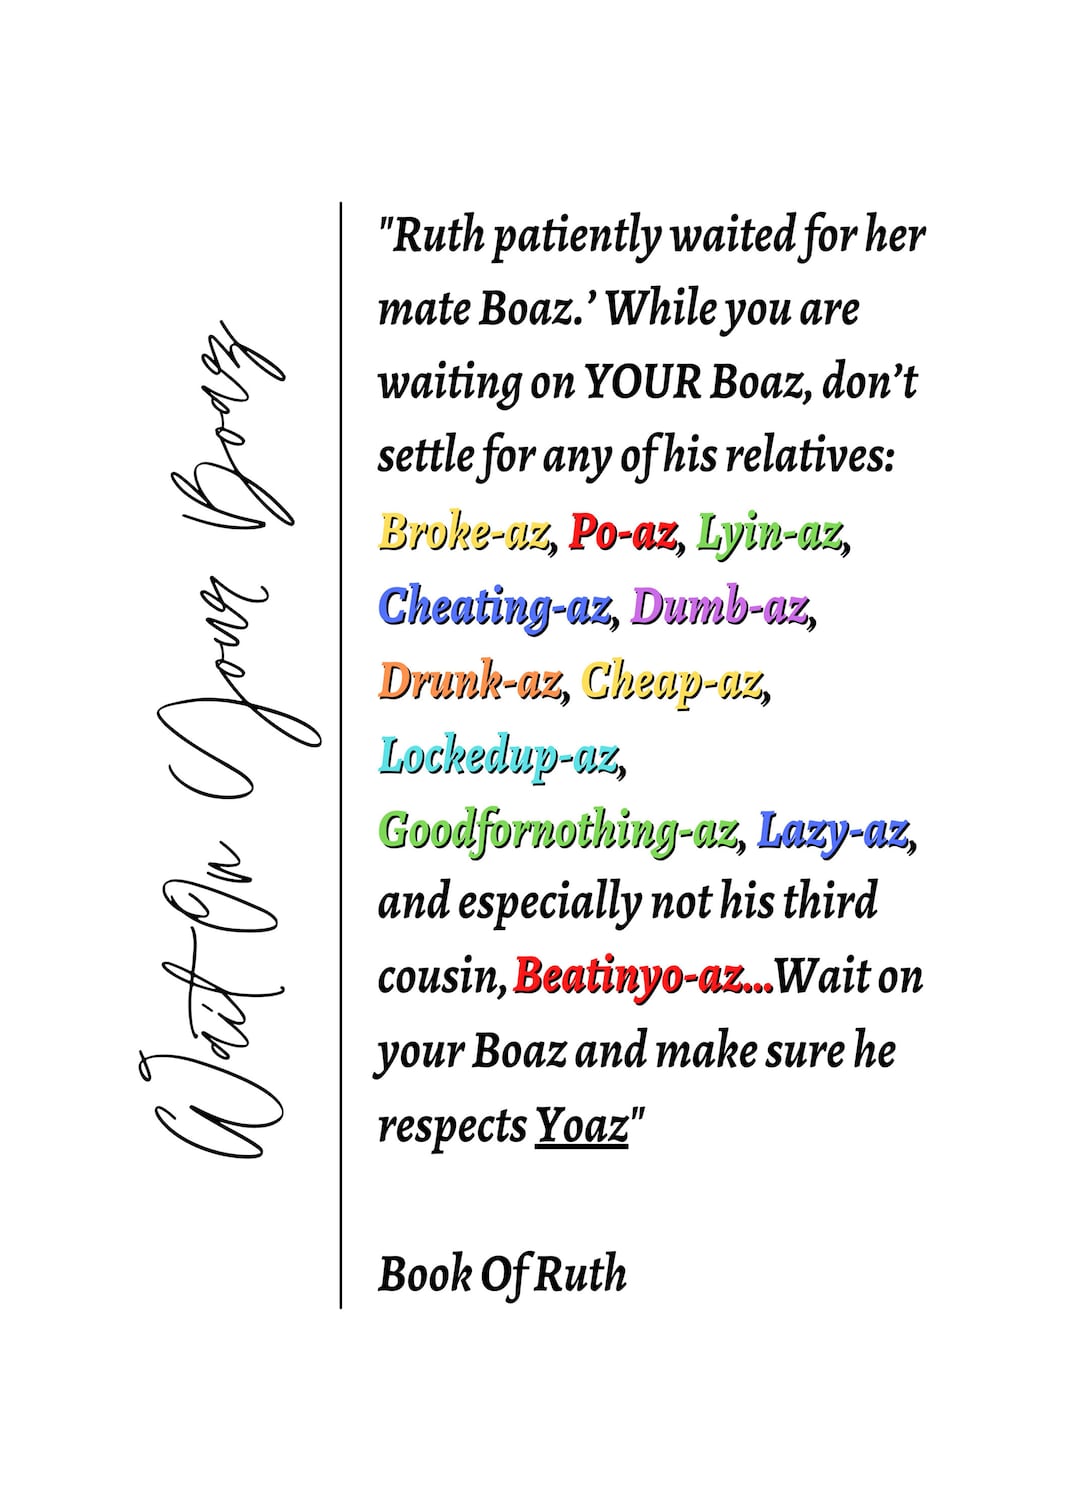 Wait On Your Boaz
"Ruth patiently waited for her
mate Boaz.’ While you are
waiting on YOUR Boaz, don’t
settle for any of his relatives:
Broke-az, Po-az, Lyin-az,
Cheating-az, Dumb-az,
Drunk-az, Cheap-az,
Lockedup-az,
Goodfornothing-az, Lazy-az,
and especially not his third
cousin, Beatinyo-az...Wait on
your Boaz and make sure he
respects Yoaz"
Book Of Ruth